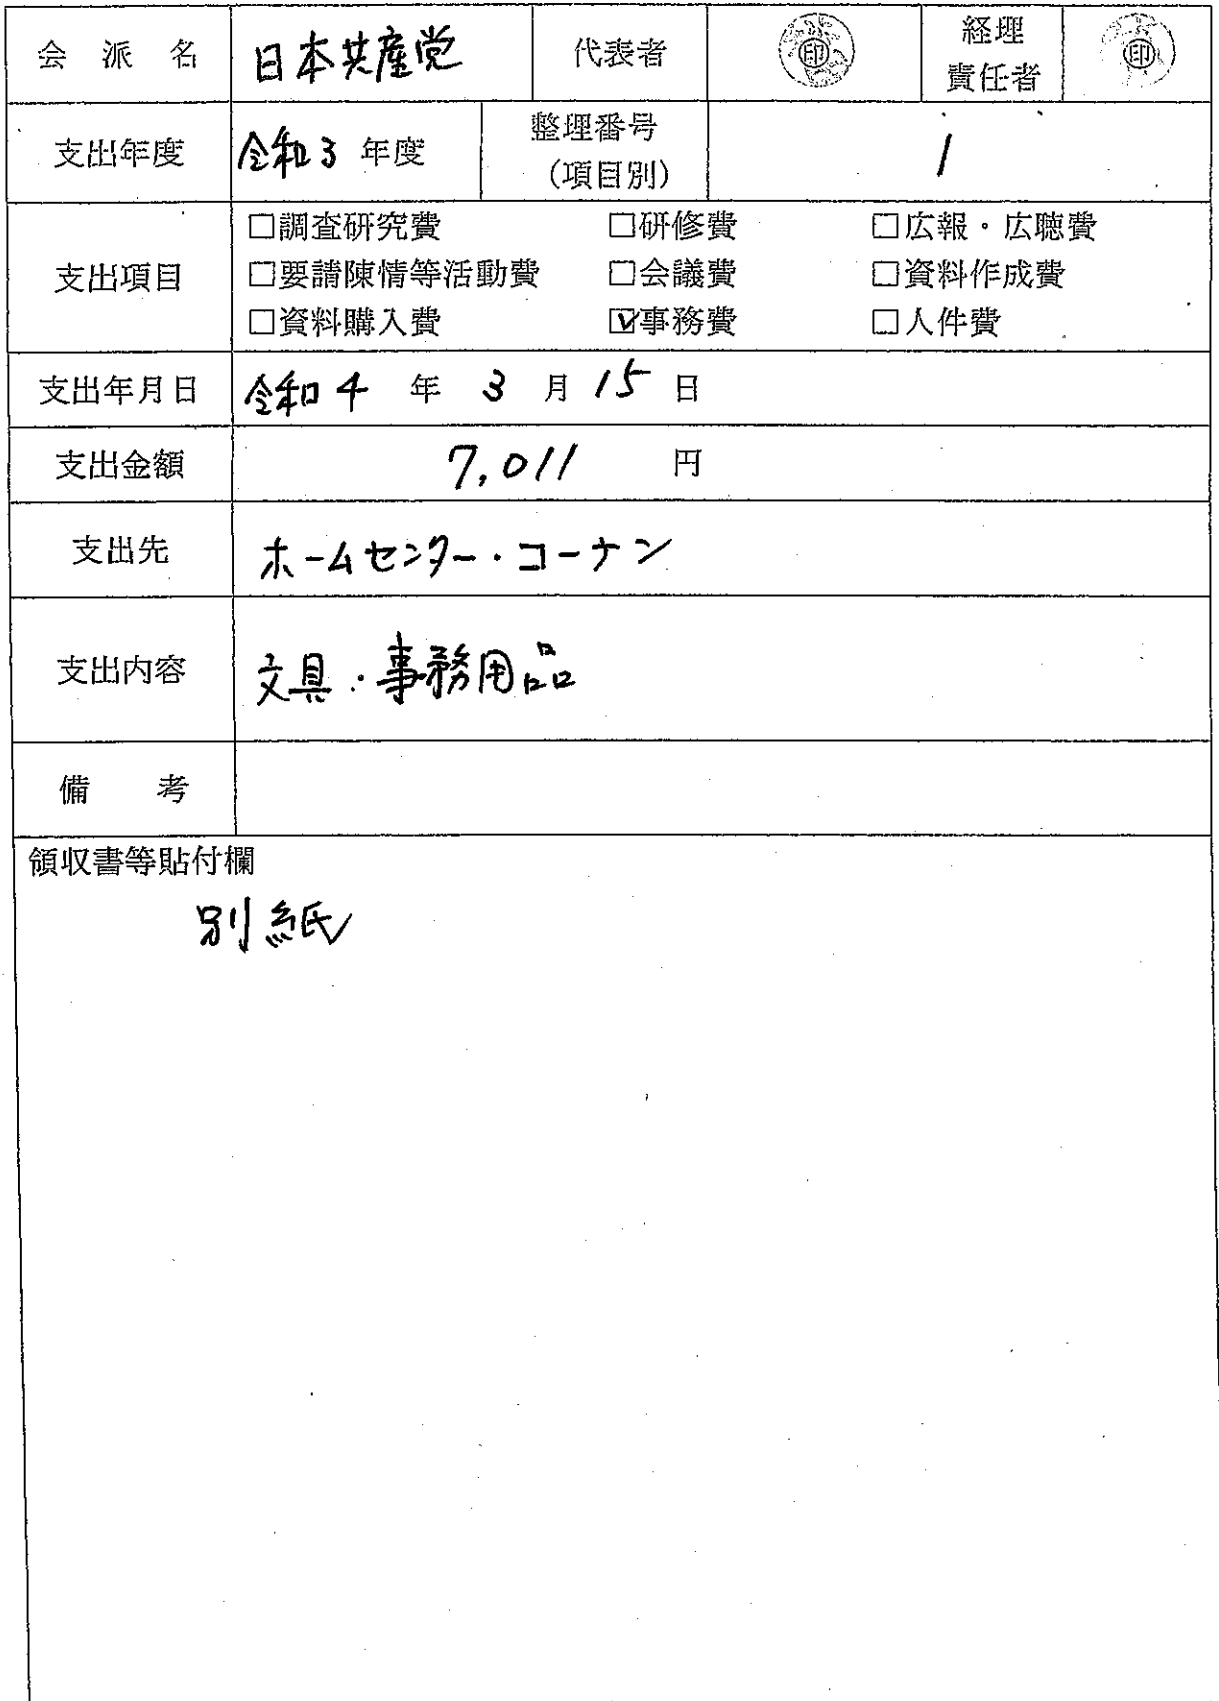 会派名 日本共産党 代表者 印 経理責任者 印
支出年度 令和3年度 整理番号(項目別) 1
支出項目 □調査研究費 □研修費 □広報・広聴費
□要請陳情等活動費 □会議費 □資料作成費
□資料購入費 ☑事務費 □人件費
支出年月日 令和4年3月15日
支出金額 7,011円
支出先 ホームセンター・コーナン
支出内容 文具・事務用品
備考
領収書等貼付欄
別紙